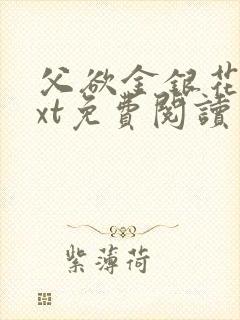 父欲金銀花
xt免費閱讀
紫薄荷